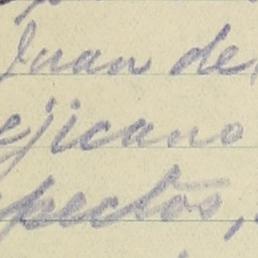 Juan de
ejicano
pectos,